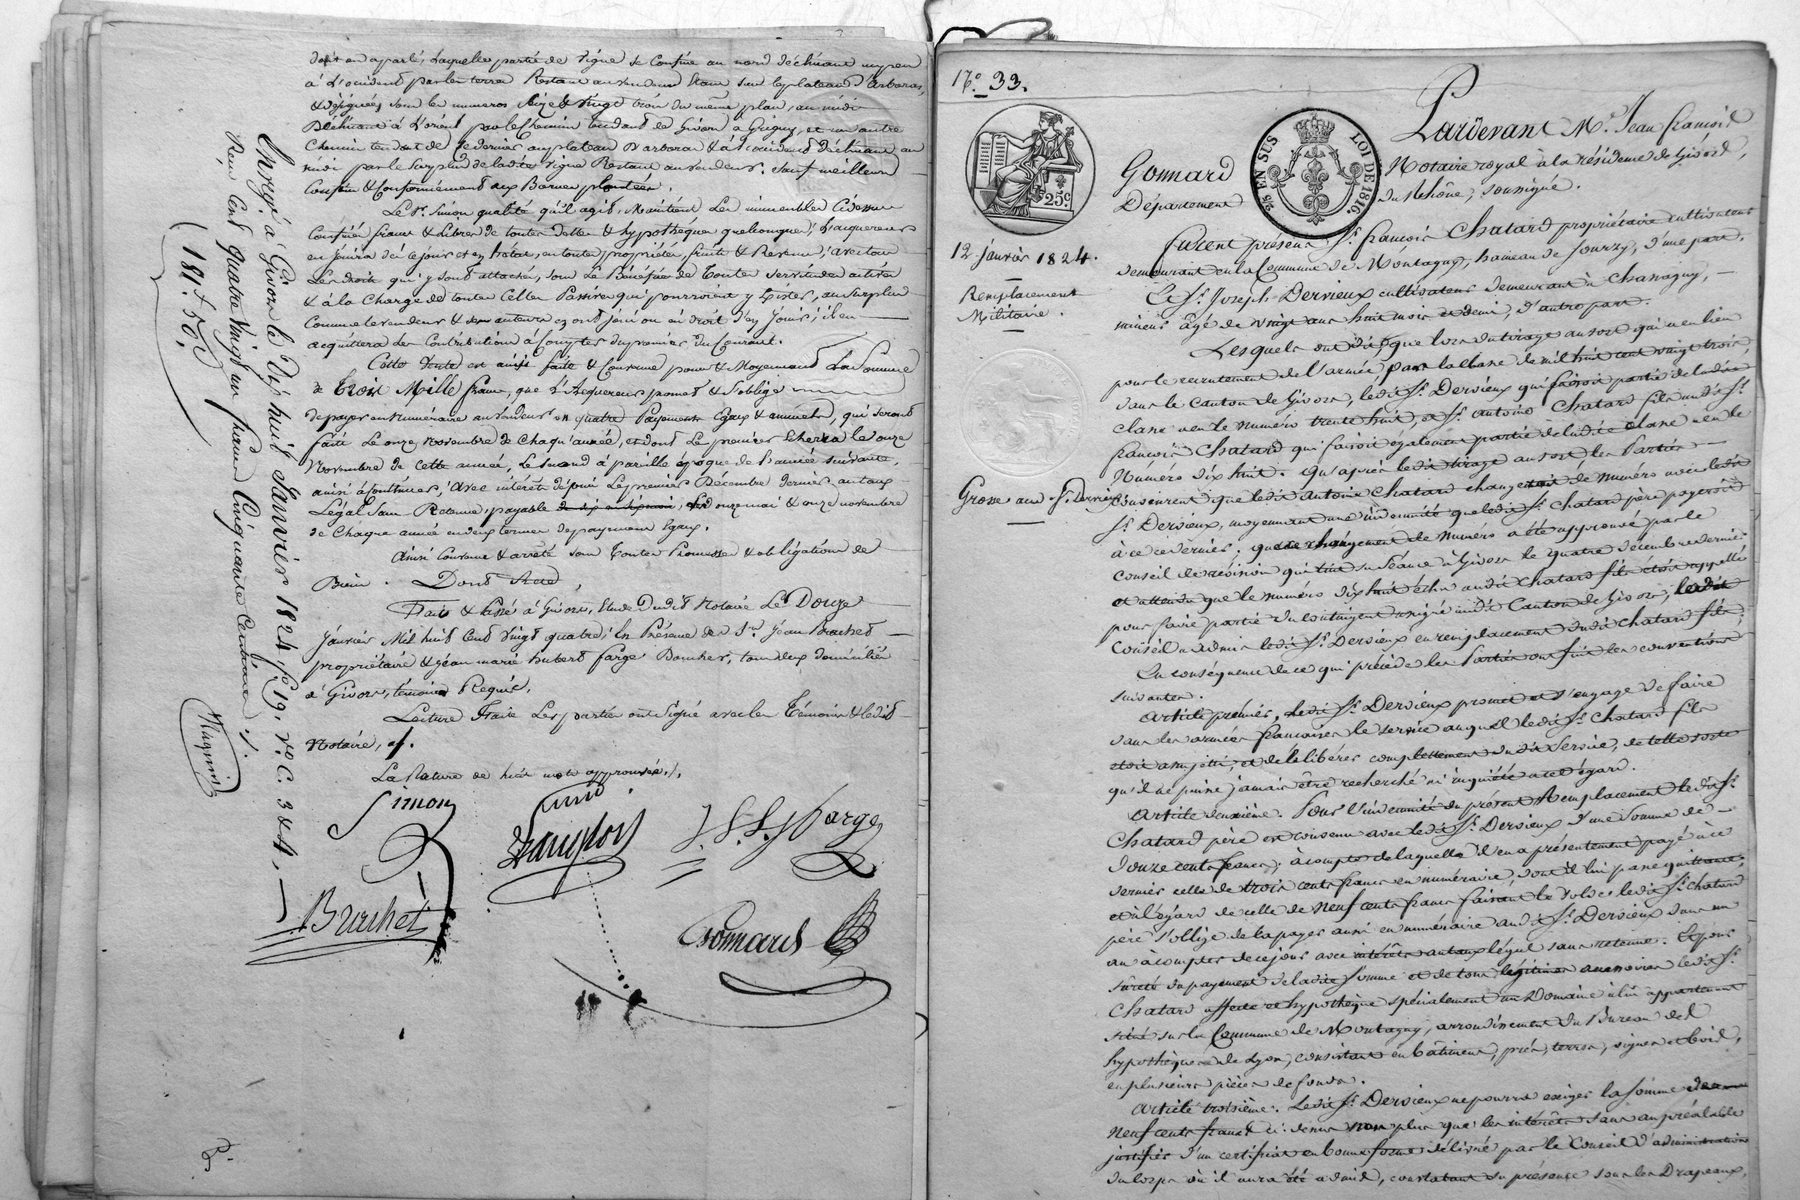 dont on a parlé, laquelle partie de vigne se confine au nord déclinant un peu
à l'occident par les terres restant au vendeur étant sur le plateau d'Arboras,
& désignées sous les numéros seize & vingt trois du même plan, au midi
déclinant à l'orient par le chemin tendant de Givors à Grigny, et un autre
chemin tendant de ce dernier au plateau d'Arboras & à l'occident déclinant au
midi par le surplus de ladite vigne restant au vendeur. Sauf meilleurs
confins & conformément aux bornes plantées.
Le Sr. Simon qualité qu'il agit, maintient les immeubles cidessus
confinés francs & libres de toutes dettes & hypothèques quelconques; l'acquéreur
en jouira dès ce jour et en toute propriété, fruits & revenus, avec tous
les droits qui y sont attachés, sous le bénéfice de toutes servitudes actives
& à la charge de toutes celles passives qui pourroient y exister, au surplus
comme le vendeur & ses auteurs en ont joui ou eu droit d'en jouir; il en
acquittera les contributions à compter du premier du courant.
Cette vente est ainsi faite & convenue pour & moyennant la somme
de trois mille francs, que l'acquéreur promet & s'oblige
de payer en numéraire au vendeur en quatre payements égaux & annuels, qui seront
faits le onze novembre de chaqu'année, et dont le premier écherra le onze
novembre de cette année, le second à pareille époque de l'année suivante,
ainsi à continuer, avec intérêts depuis le premier décembre dernier au taux
légal sans retenue, payable les onze mai & onze novembre
de chaque année en deux termes de payement égaux.
Ainsi convenu & arrêté sous toutes promesses & obligations de
Biens. Dont acte,
Fait & passé à Givors, étude dudit notaire le Douze
janvier mil huit cent vingt quatre; en présence de Srs. jean Brachet
propriétaire & jean marie hubert farge Boucher, tous deux domiciliés
à Givors, témoins requis.
Lecture faite les parties ont signé avec les témoins & ledit
Notaire,
La rature de huit mots approuvée.
Simon
Langlois
farge
Brachet
Gonnard
Enrgé à Givors le dix huit Janvier 1824, fo. 19. ro. C. 3 & 4,
Reçu cent quatre vingt un francs cinquante centimes
(181f 50c.)
Magnin
No. 33.
25c.
25 EN SUS
LOI DE 1816.
12 janvier 1824.
Remplacement
Militaire.
Grosse aud. Sr. Dervieux
Pardevant Me. Jean françois
Gonnard Notaire royal à la résidence de Givors,
Département du Rhône, soussigné.
furent présens Sr. françois Chatard propriétaire cultivateur
demeurant en la Commune de Montagny, hameau de Sourzy, d'une part.
Et Sr. Joseph Dervieux cultivateur demeurant à Chassagny,
mineur âgé de vingt ans huit mois et demi, d'autre part.
Lesquels ont dit, que lors du tirage au sort qui a eu lieu
pour le recrutement de l'armée, pour la classe de mil huit cent vingt trois,
dans le canton de Givors, ledit Sr. Dervieux qui faisoit partie de ladite
classe a eu le numéro trente huit, et Sr. antoine Chatard fils audit Sr.
françois Chatard qui faisoit également partie de ladite classe a eu le
Numéro dix huit. Qu'après ledit tirage au sort les Parties
convinrent que ledit antoine Chatard changeroit de numéro avec ledit
Sr. Dervieux, moyennant une indemnité que ledit Sr. Chatard père payeroit
à ce dernier; que ce changement de numéro a été approuvé par le
conseil de révision qui tint sa séance à Givors le quatre décembre dernier
et attendu que le numéro dix huit échu audit Chatard fils étoit appellé
pour faire partie du contingent assigné audit Canton de Givors, ledit
Conseil a admis ledit Sr. Dervieux en remplacement dudit Chatard fils;
En conséquence de ce qui précède les Parties ont fait les conventions
suivantes.
Article premier. Ledit Sr. Dervieux promet et s'engage de faire
dans les armées françaises le service auquel ledit Sr. Chatard fils
étoit assujetti, et de le libérer complettement dudit service, de telle sorte
qu'il ne puisse jamais être recherché ni inquiété à cet égard.
Article deuxième. Pour l'indemnité du présent Remplacement ledit Sr.
Chatard père est convenu avec ledit Sr. Dervieux d'une somme de
douze cents francs; à compte de laquelle il en a présentement payé à ce
dernier celle de trois cents francs en numéraire, dont il lui passe quittance,
et à l'égard de celle de neuf cents francs faisant le solde; ledit Sr. Chatard
père s'oblige de la payer aussi en numéraire audit Sr. Dervieux dans un
an à compter de ce jour avec intérêts au taux légal sans retenue. Et pour
sûreté du payement de ladite somme et de tous légitimes accessoires ledit Sr.
Chatard affecte et hypothèque spécialement un Domaine à lui appartenant
situé sur la Commune de Montagny, arrondissement du Bureau des
hypothèques de Lyon, consistant en bâtiment, prés, terres, vignes et bois,
en plusieurs pièces de fonds.
Article troisième. Ledit Sr. Dervieux ne pourra exiger la somme de
neuf cents francs ci-dessus non plus que les intérêts sans au préalable
justifier d'un certificat en bonne forme délivré par le Conseil d'administration
du corps où il aura été admis, constatant sa présence sous les Drapeaux,